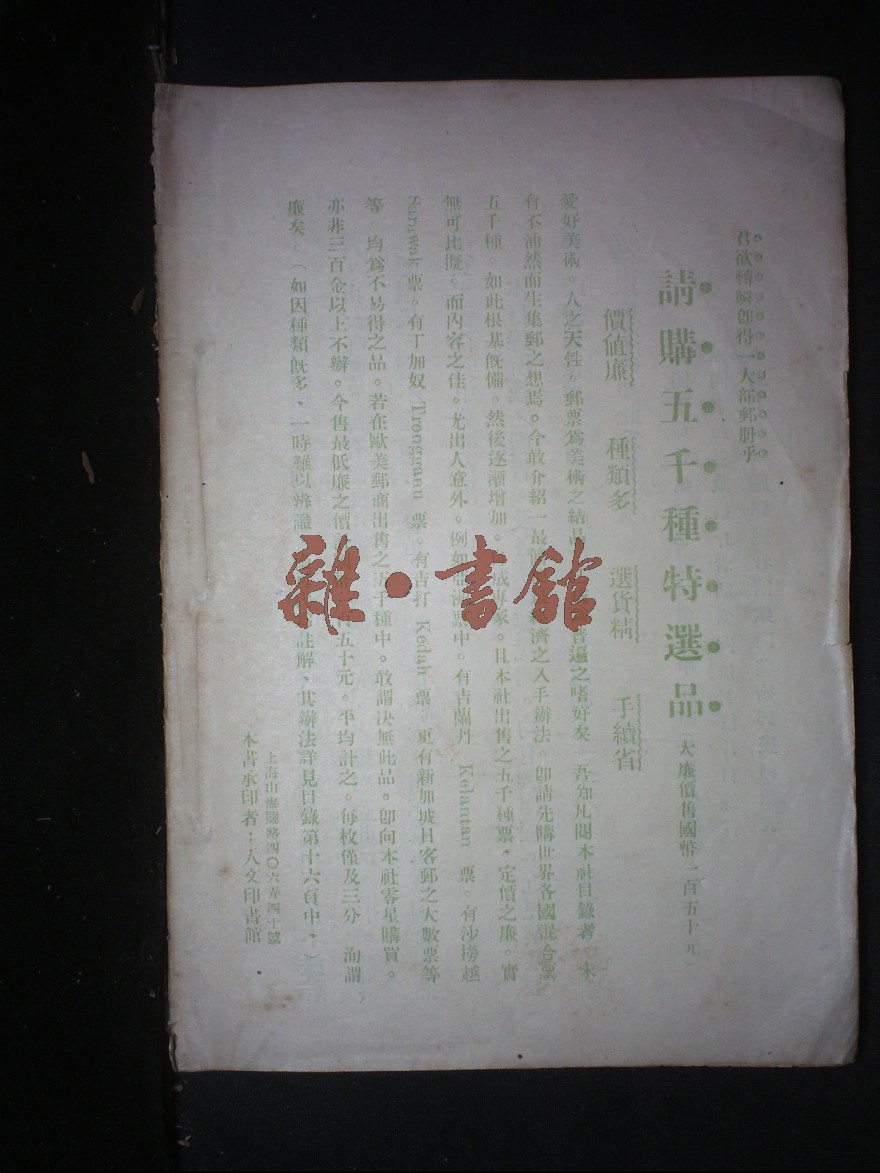 君欲轉瞬卽得一大部郵册乎
請購五千種特選品(大廉價售國幣一百五十元)
價值廉 種類多 選貨精 手續省
愛好美術。人之天性。郵票爲美術之結晶 普遍之嗜好矣 吾知凡閱本社目錄者。未
有不油然而生集郵之想焉。今敢介紹一最 濟之入手辦法。卽請先購世界各國混合票
五千種。如此根基旣備。然後逐漸增加。 成專家。且本社出售之五千種票。定價之廉。實
無可比擬。而內容之佳。尤出人意外。例如 洲票中。有吉蘭丹 Kelantan 票。有沙撈越
Sarawak 票。有丁加奴 Trengganu 票。有吉打 Kedah 票 更有新加坡日客郵之大數票等
等。均爲不易得之品。若在歐美郵商出售之五千種中。敢謂决無此品。卽向本社零星購買。
亦非三百金以上不辦。今售最低廉之價 百五十元。平均計之。每枚僅及三分 洵謂
廉矣。(如因種類旣多、一時難以辨識 註解、其辦法詳見目錄第十六頁中、)
上海山海關路四〇六弄四十號
本書承印者:人文印書館
雜·書館